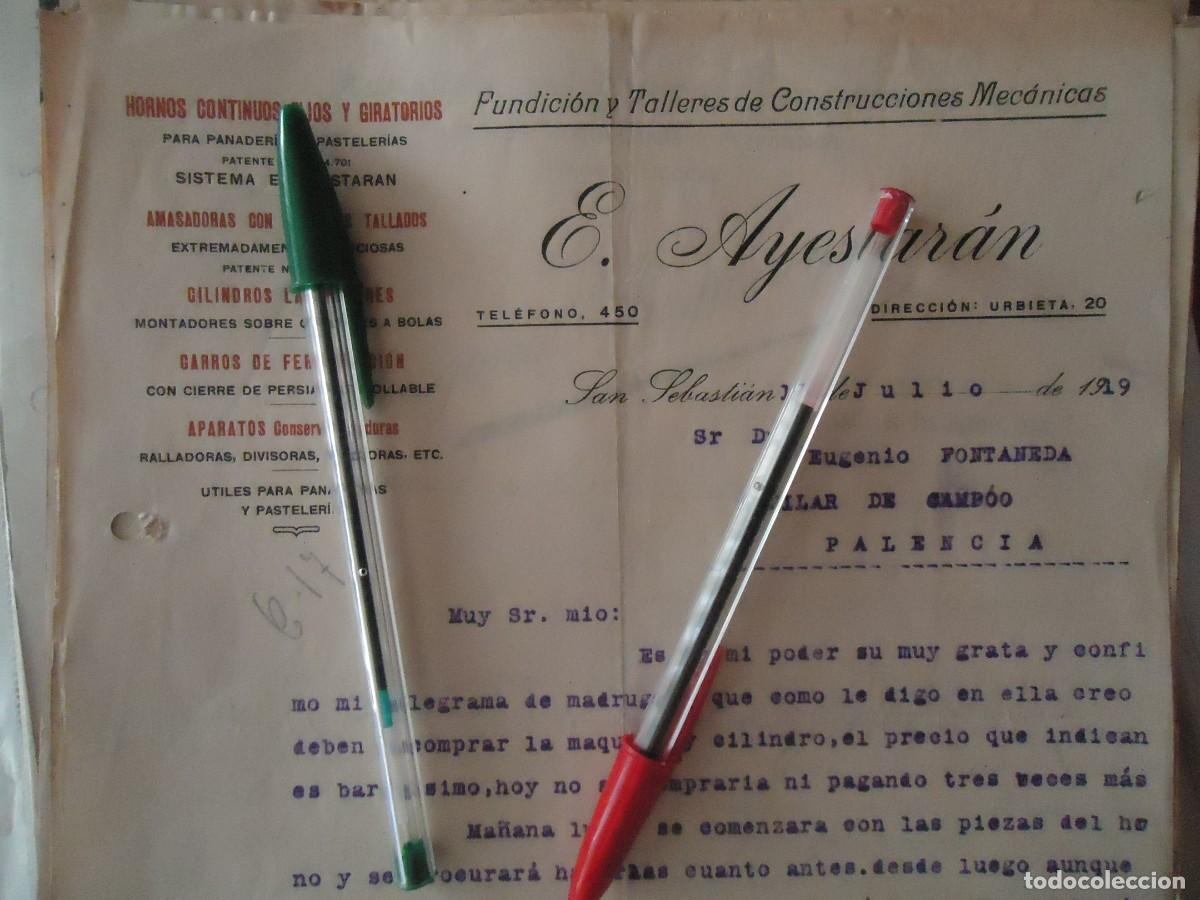 HORNOS CONTINUOS Y GIRATORIOS
PARA PANADER PASTELERÍAS
PATENTE 4.701
SISTEMA E. STARAN
AMASADORAS CON TALLADOS
EXTREMADAMEN CIOSAS
PATENTE N
CILINDROS LA RES
MONTADORES SOBRE A BOLAS
CARROS DE FER CION
CON CIERRE DE PERSIA OLLABLE
APARATOS Conserv duras
RALLADORAS, DIVISORAS, ORAS, ETC.
UTILES PARA PAN AS
Y PASTELERÍ
6-17
Fundición y Talleres de Construcciones Mecánicas
E. Ayestarán
TELÉFONO, 450
DIRECCIÓN: URBIETA, 20
San Sebastián de Julio de 1919
Sr D
Eugenio FONTANEDA
ILAR DE CAMPÓO
PALENCIA
Muy Sr. mio:
Es mi poder su muy grata y confi
mo mi legrama de madrug que como le digo en ella creo
deben comprar la maqu y cilindro,el precio que indican
es bar simo,hoy no s mpraria ni pagando tres veces más
Mañana lu se comenzara con las piezas del ho
no y se rocurará ha rlas cuanto antes.desde luego aunque
todocoleccion